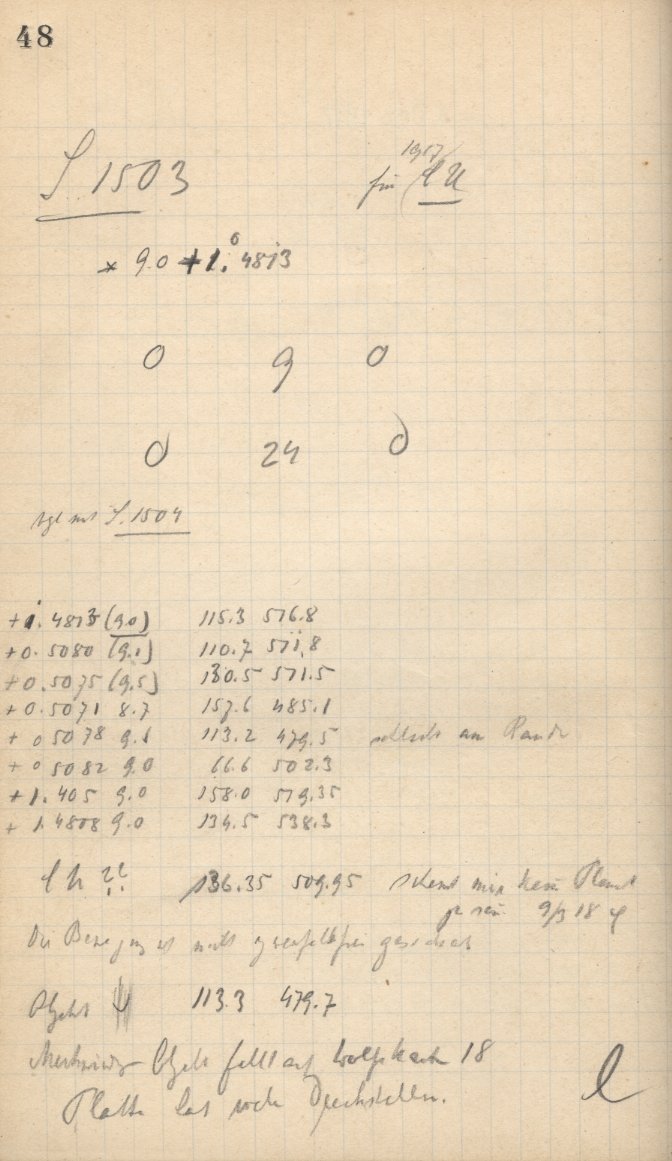 48
S 1503
1917
für CU
* 9.0 +1.° 4813
0 9 0
0 24 0
S. 1504
+1. 4813 (9.0) 115.3 516.8
+0. 5080 (9.1) 110.7 511.8
+0. 5075 (9.5) 130.5 571.5
+0. 5071 8.7 157.6 485.1
+0 5078 9.1 113.2 479.5 schlecht am Rande
+0 5082 9.0 66.6 502.3
+1. 405 9.0 158.0 519.35
+1. 4808 9.0 134.5 538.3
136.35 509.95 scheint mir kein Planet
zu sein 9/3 18
Die Bewegung ist nicht zweifelsfrei
Objekt 113.3 479.7
Objekt fällt auf Wolfskarte 18
Platte hat viele Druckstellen.